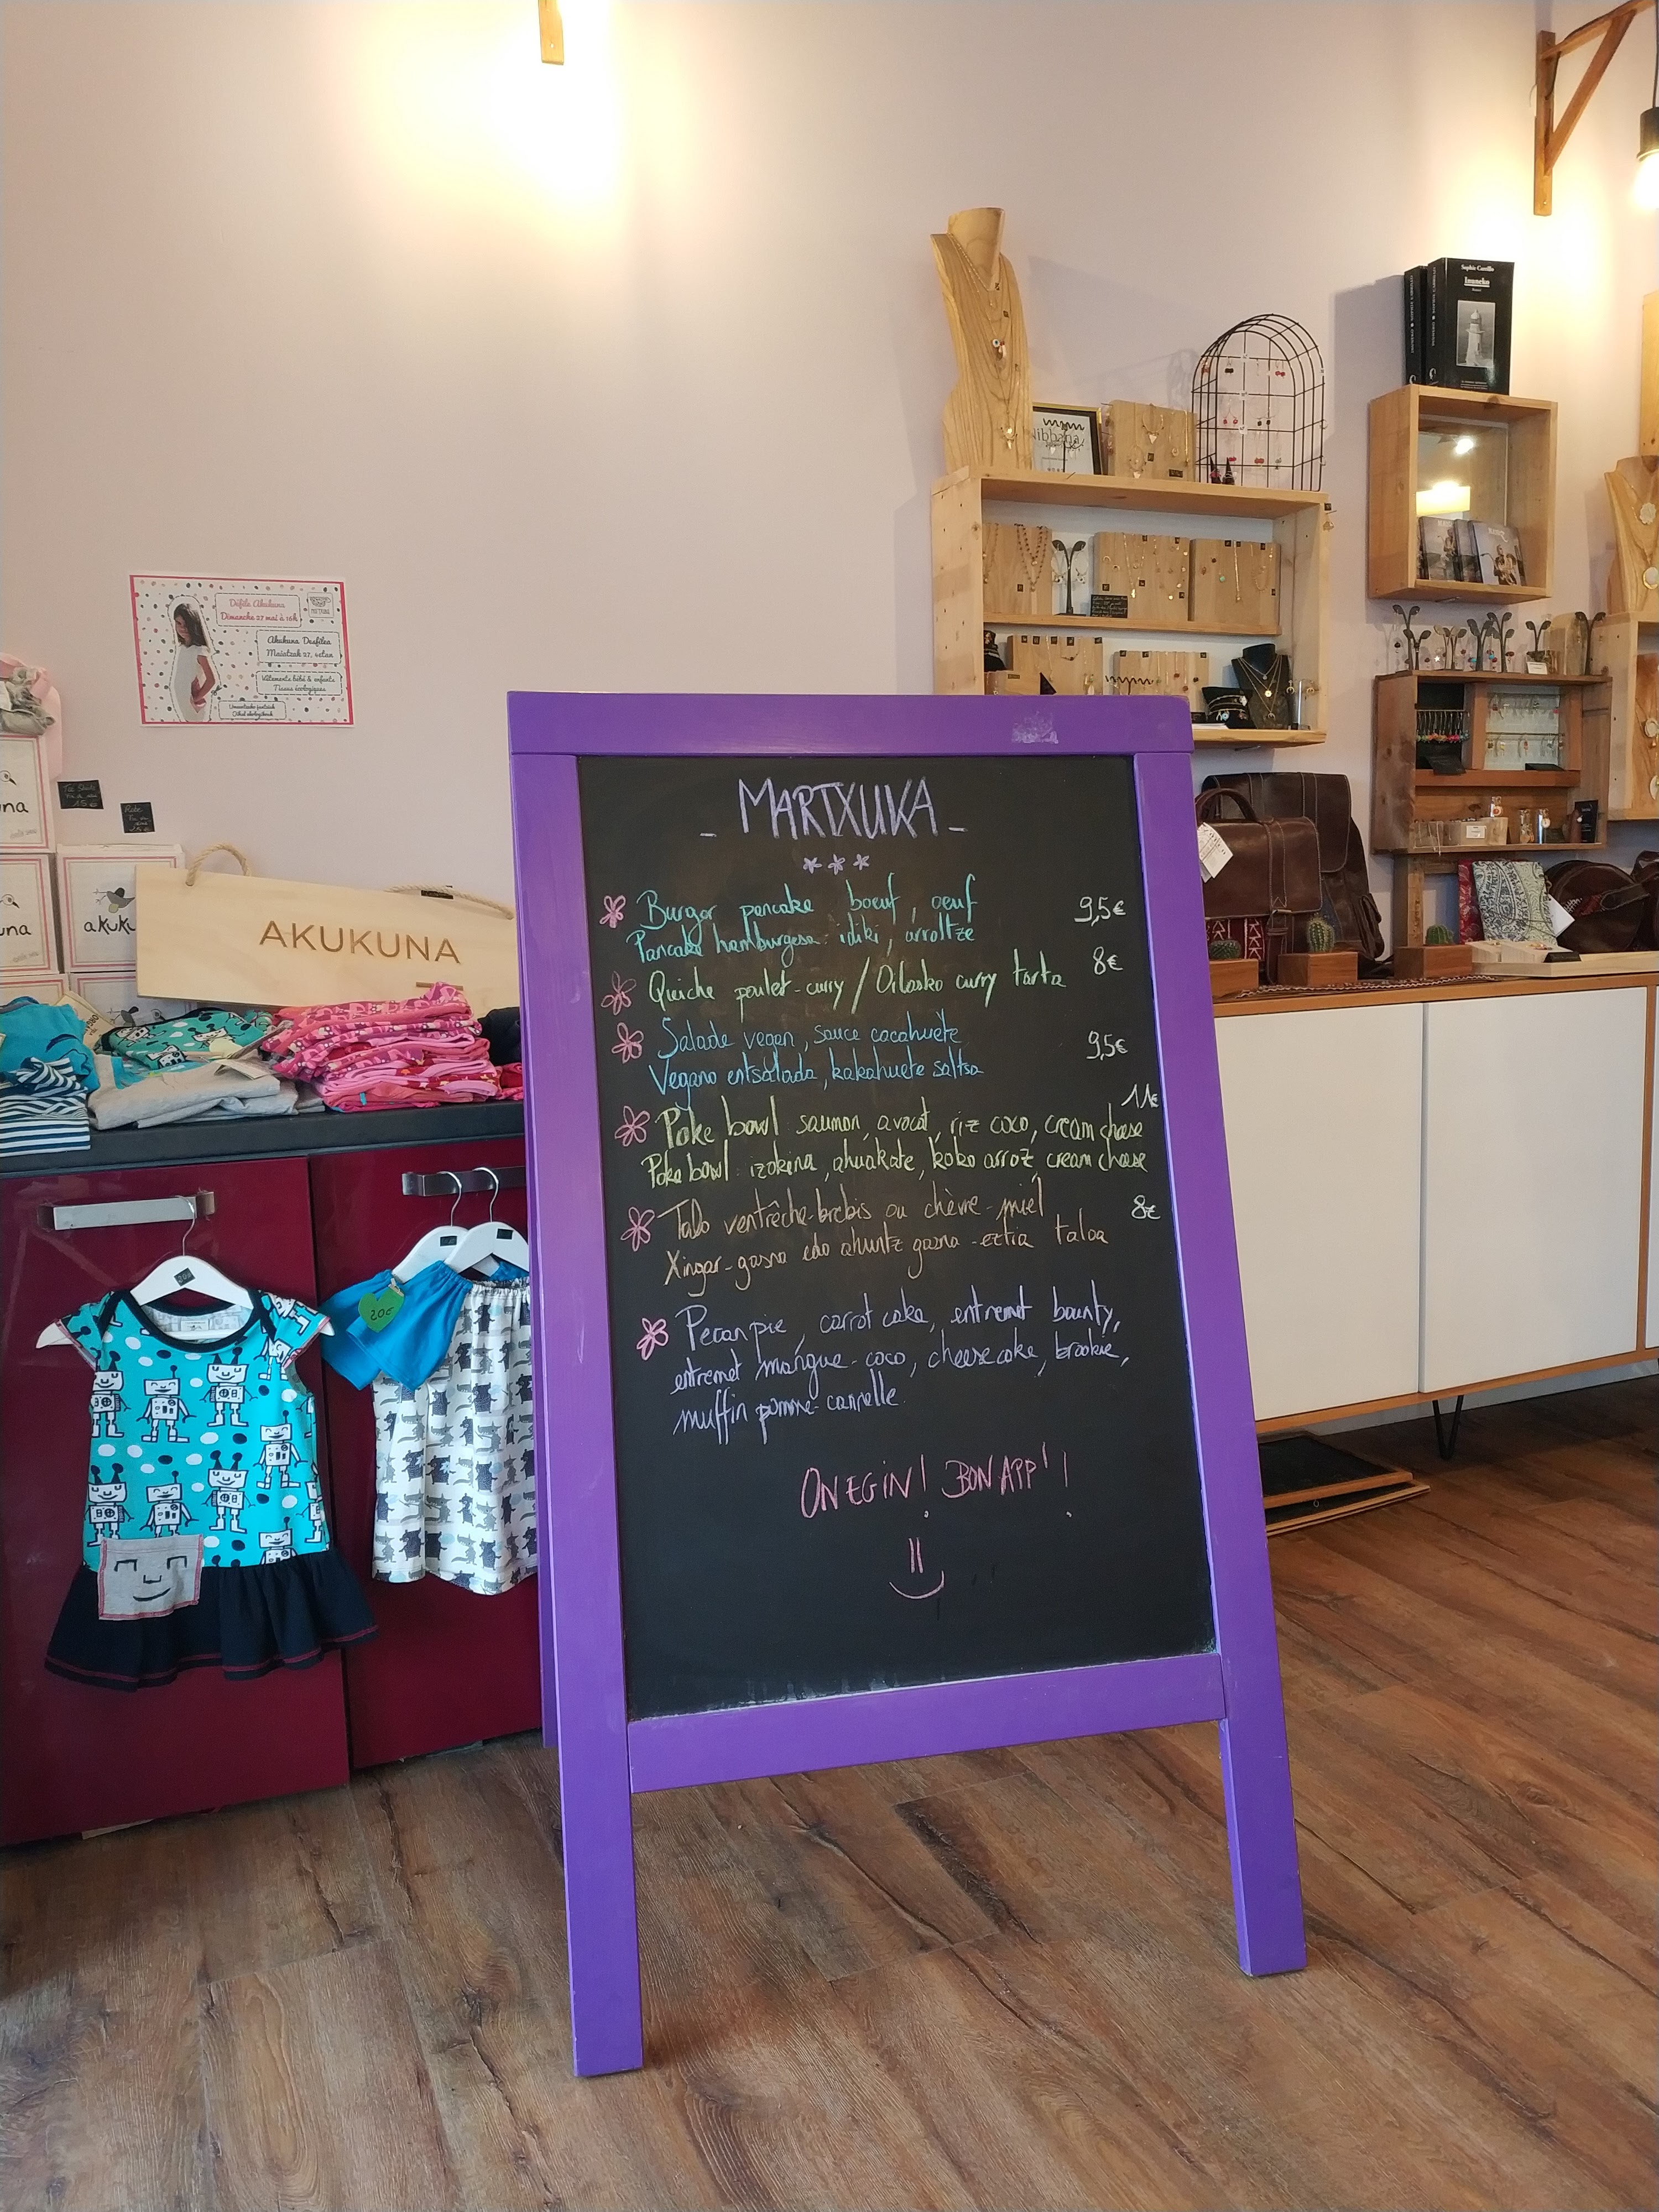 Sophie Castillo
Inuneko
Nibbana
Défilé Akukuna
Dimanche 27 mai à 16h
Akukuna Desfilea
Maiatzak 27,
Vêtements bébé & enfants
Tissus écologiques
Umeentzako jantziak
Oihal ekologikoak
una
una
akuku
AKUKUNA
20€
- MARTXUKA -
Burger pancake boeuf, oeuf 9,5€
Pancake hamburgesa: idiki, arroltze
Quiche poulet-curry / Oilasko curry tarta 8€
Salade vegan, sauce cacahuète 9,5€
Vegano entsalada, kakahuete saltsa
11€
Poke bowl saumon, avocat, riz coco, cream cheese
Poke bowl: izokina, ahuakate, koko arroz, cream cheese
Talo ventrêche-brebis ou chèvre-miel 8€
Xingar-gasna edo ahuntz gasna-eztia taloa
Pecan pie, carrot cake, entremet bounty,
entremet mangue-coco, cheesecake, brookie,
muffin pomme-cannelle
ON EGIN! BON APP'!